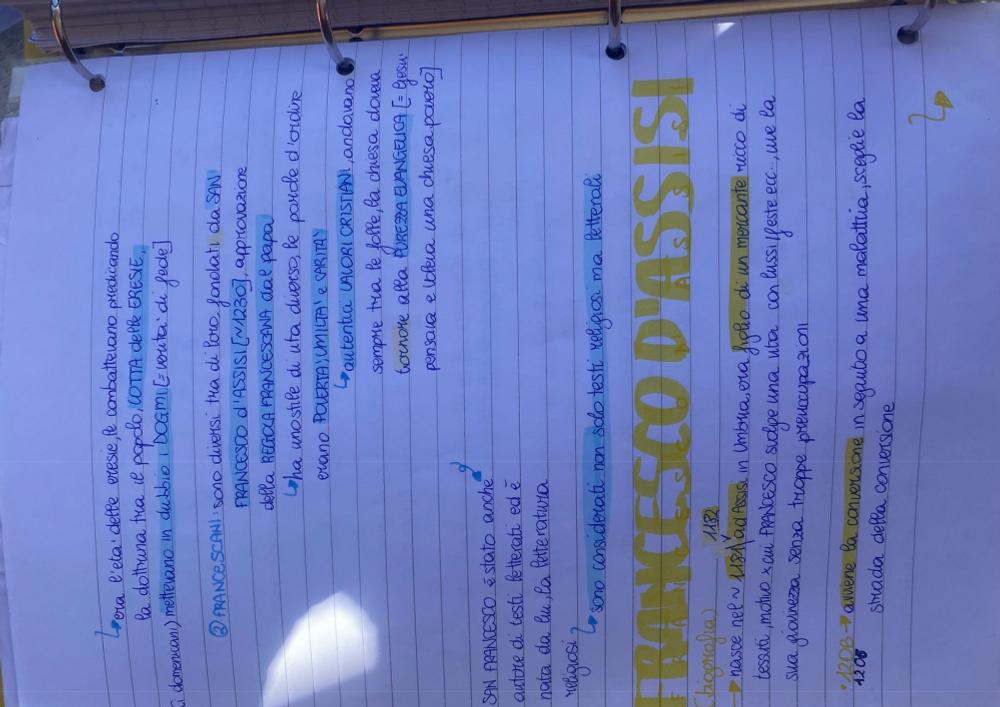 ↳ era l'età delle eresie, le combattevano predicando
la dottrina tra il popolo, LOTTA delle ERESIE,
(i domenicani) mettevano in dubbio i DOGMI [= verità di fede]
② FRANCESCANI: sono diversi tra di loro, fondati da SAN
FRANCESCO d'ASSISI [~1230], approvazione
della REGOLA FRANCESCANA dal papa
↳ ha uno stile di vita diverso, le parole d'ordine
erano POVERTÀ, UMILTÀ e CARITÀ
↳ autentici VALORI CRISTIANI, andavano
sempre tra le folle, la chiesa doveva
tornare alla PUREZZA EVANGELICA [= Gesù
pensava e voleva una chiesa povera]
SAN FRANCESCO è stato anche
autore di testi letterati ed è
nata da lui, la letteratura
religiosa
↳ sono considerati non solo testi religiosi ma letterali
FRANCESCO D'ASSISI
(biografia) 1182
→ nasce nel ~ 1181 ad ASSISI in Umbria, era figlio di un mercante ricco di
tessuti, motivo x cui FRANCESCO svolge una vita con lussi, feste ecc..., vive la
sua giovinezza senza troppe preoccupazioni
• 1206 → avviene la conversione in seguito a una malattia, sceglie la
1206 strada della conversione